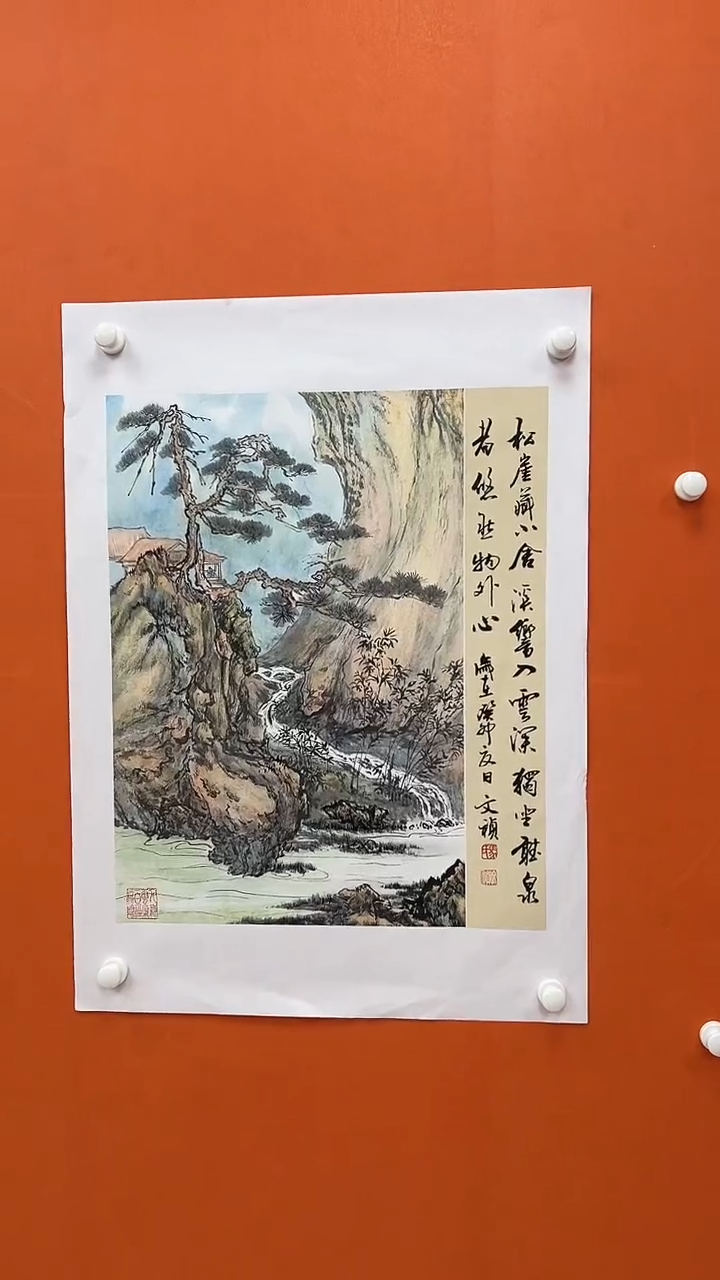 松崖藏小舍溪響入雲深獨坐聽泉
者悠然物外心歲在癸卯夏日文禎